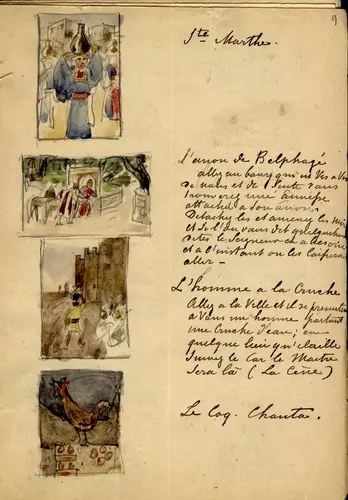 9
Ste Marthe.
L'anon de Belphagé
allez au bourg qui est vis a vis
de vous et de suite vous
trouverez une anesse
attachée a son anon
Detachez les et amenez les moi
et si l'on vous dit quelque chose
dites le Seigneur en a besoin
et a l'instant on les laissera
aller –
L'homme a la Cruche
Allez a la Ville et il se presentera
a vous un homme portant
une Cruche d'eau; en
quelque lieu qu'il aille
suivez le car le Maitre
sera là (La Cène)
Le Coq. Chanta.